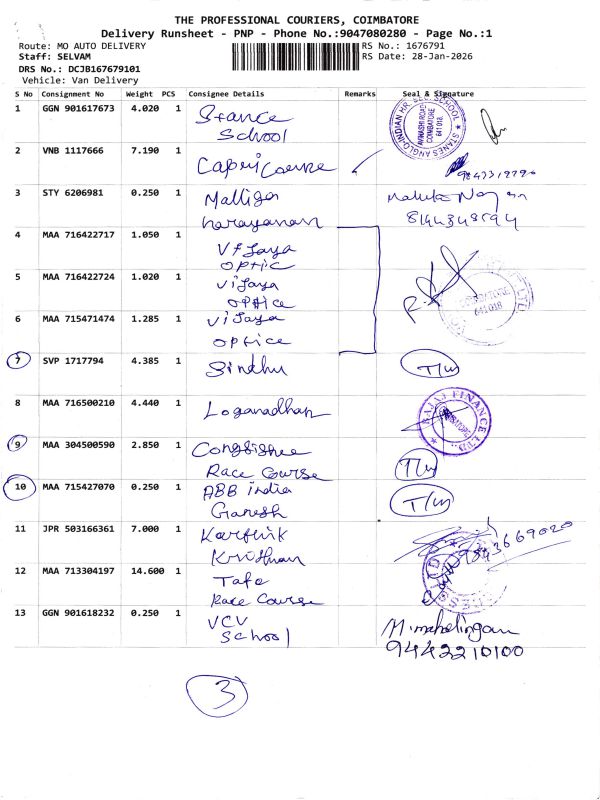 THE PROFESSIONAL COURIERS, COIMBATORE
Delivery Runsheet - PNP - Phone No.:9047080280 - Page No.:1
Route: MO AUTO DELIVERY RS No.: 1676791
Staff: SELVAM RS Date: 28-Jan-2026
DRS No.: DCJB167679101
Vehicle: Van Delivery
S No Consignment No Weight PCS Consignee Details Remarks Seal & Signature
1 GGN 901617673 4.020 1 Stance
School
STANES ANGLO-INDIAN HR. SEC. SCHOOL
AVINASHI ROAD
COIMBATORE
641 018.
2 VNB 1117666 7.190 1 Capri Course
3 STY 6206981 0.250 1 Malliga
narayanan
8144348594
4 MAA 716422717 1.050 1 Vijaya
optic
5 MAA 716422724 1.020 1 Vijaya
optice
641 018
6 MAA 715471474 1.285 1 Vijaya
optice
7 SVP 1717794 4.385 1 Sindhu T/w
8 MAA 716500210 4.440 1 Loganadhan
BAJAJ FINANCE LTD.
9 MAA 304500590 2.850 1
Race Course T/w
10 MAA 715427070 0.250 1 ABB india
Ganesh T/w
11 JPR 503166361 7.000 1 Karthik
Krishnan 9843669020
12 MAA 713304197 14.600 1 Tafe
Race Course
13 GGN 901618232 0.250 1 VCV
School
M. mahalingam
9442210100
3